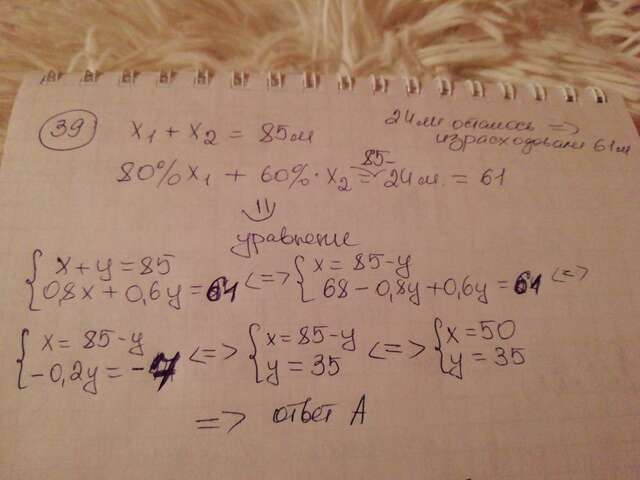 39 x₁ + x₂ = 85м
24м осталось =>
израсходовали 61м
85-
80%x₁ + 60%·x₂ = 24м. = 61
уравнение
{ x + y = 85
0,8x + 0,6y = 61 <=> { x = 85 - y
68 - 0,8y + 0,6y = 61 <=>
{ x = 85 - y
-0,2y = -7 <=> { x = 85 - y
y = 35 <=> { x = 50
y = 35
=> ответ А